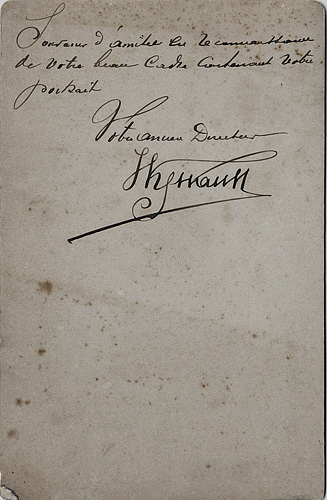 Souvenir d'amitié en reconnaissance
de votre beau Cadre Contenant Votre
portrait
Votre ancien Directeur